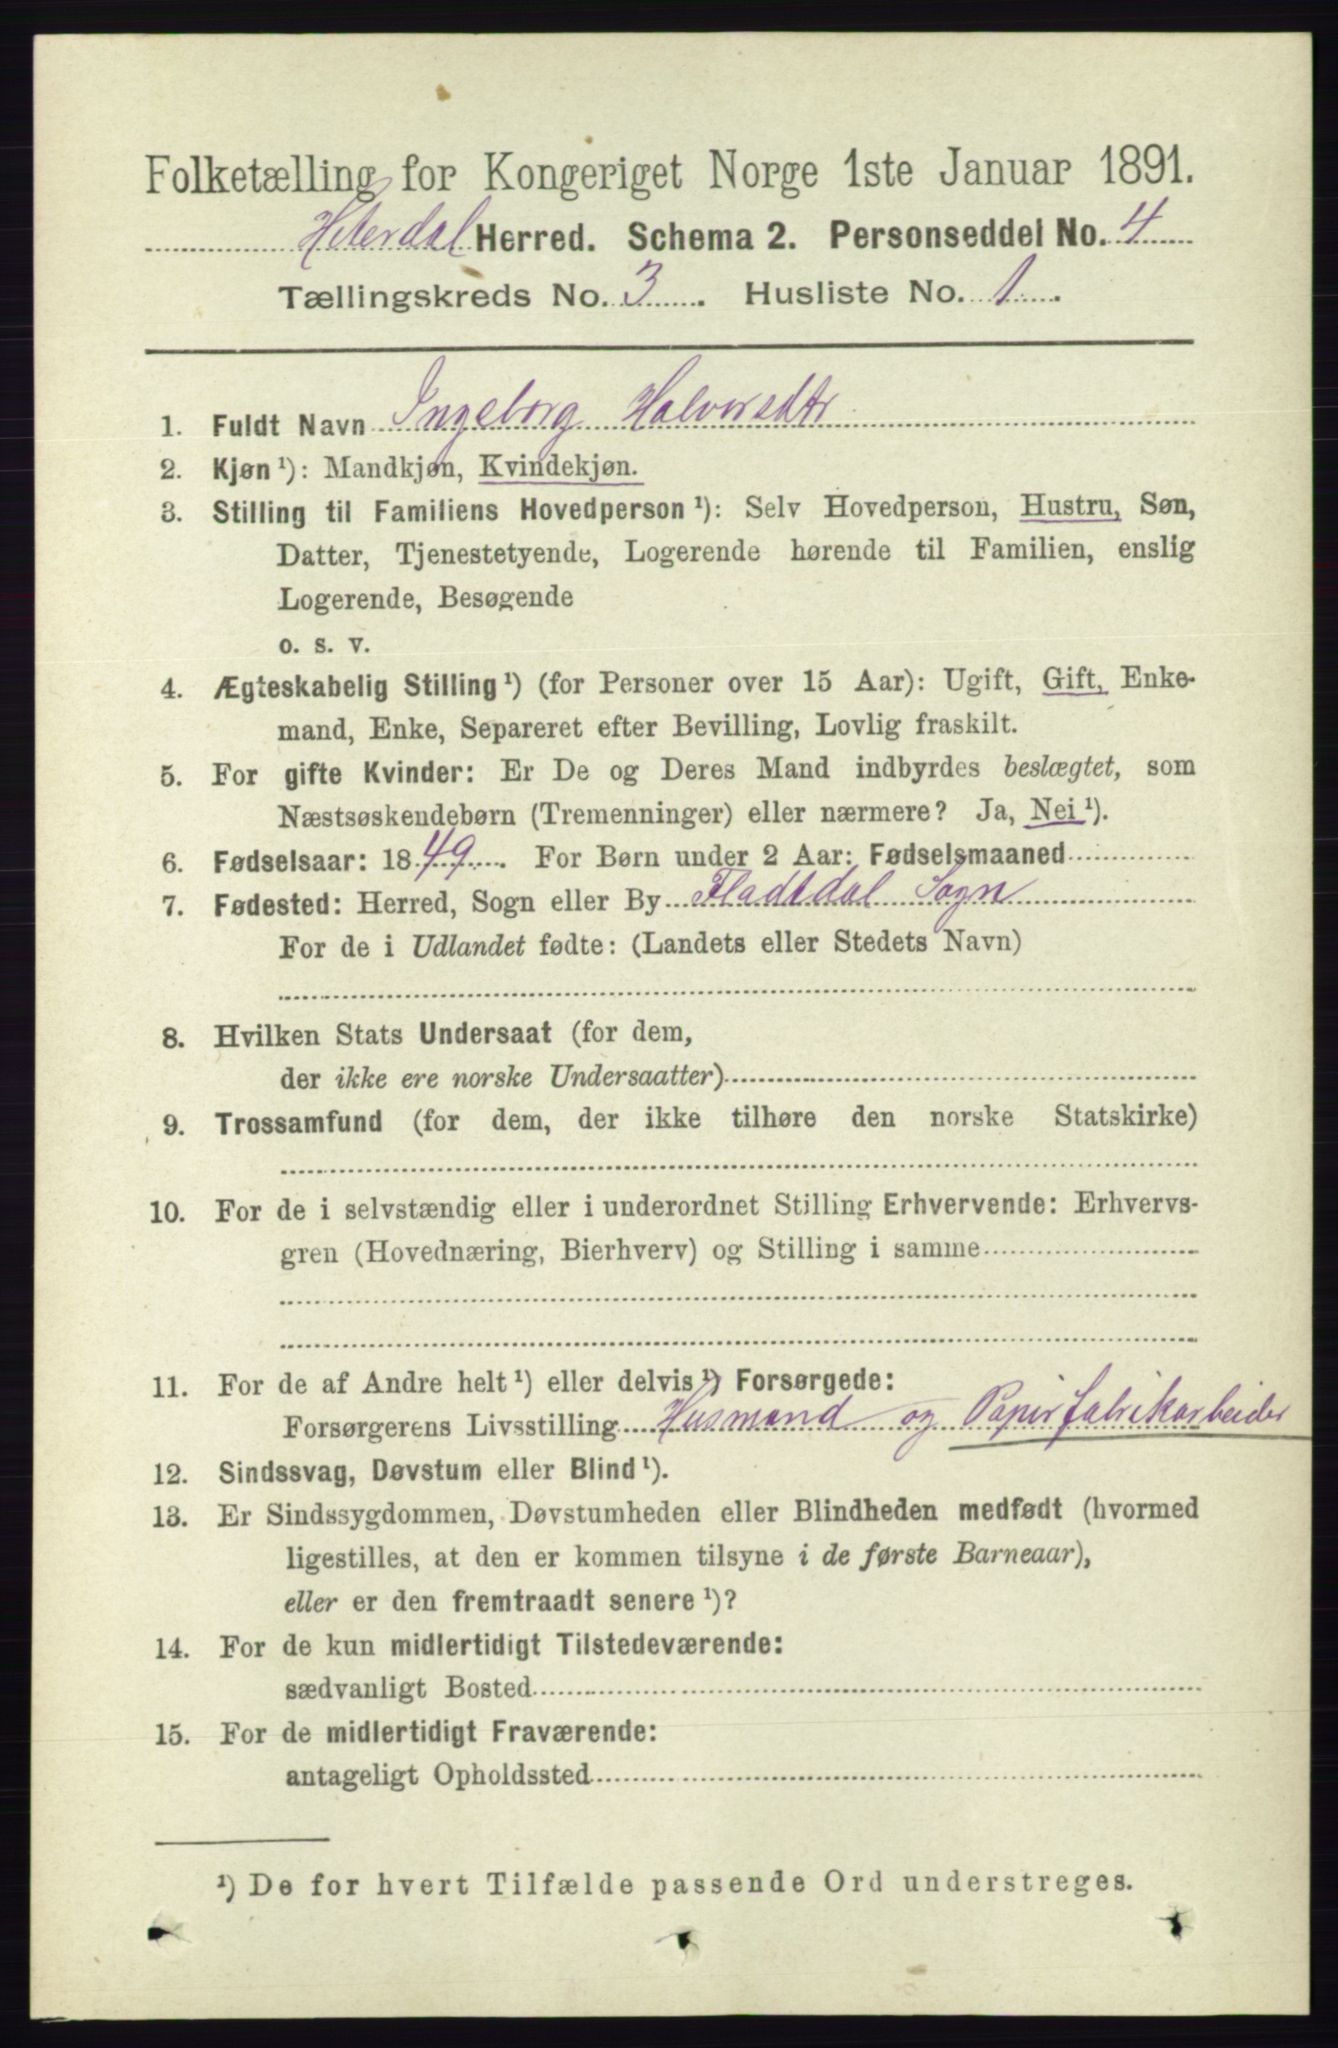 Folketælling for Kongeriget Norge 1ste Januar 1891.
Hiterdal Herred. Schema 2. Personseddel No. 4
Tællingskreds No. 3. Husliste No. 1.
1. Fuldt Navn Ingeborg Halvorsdtr
2. Kjøn¹): Mandkjøn, Kvindekjøn.
3. Stilling til Familiens Hovedperson¹): Selv Hovedperson, Hustru, Søn,
Datter, Tjenestetyende, Logerende hørende til Familien, enslig
Logerende, Besøgende
o. s. v.
4. Ægteskabelig Stilling¹) (for Personer over 15 Aar): Ugift, Gift, Enke-
mand, Enke, Separeret efter Bevilling, Lovlig fraskilt.
5. For gifte Kvinder: Er De og Deres Mand indbyrdes beslægtet, som
Næstsøskendebørn (Tremenninger) eller nærmere? Ja, Nei¹).
6. Fødselsaar: 1849. For Børn under 2 Aar: Fødselsmaaned
7. Fødested: Herred, Sogn eller By Fladtdal Sogn
For de i Udlandet fødte: (Landets eller Stedets Navn)
8. Hvilken Stats Undersaat (for dem,
der ikke ere norske Undersaatter)
9. Trossamfund (for dem, der ikke tilhøre den norske Statskirke)
10. For de i selvstændig eller i underordnet Stilling Erhvervende: Erhvervs-
gren (Hovednæring, Bierhverv) og Stilling i samme
11. For de af Andre helt¹) eller delvis¹) Forsørgede:
Forsørgerens Livsstilling Husmand og Papirfabrikarbeider
12. Sindssvag, Døvstum eller Blind¹).
13. Er Sindssygdommen, Døvstumheden eller Blindheden medfødt (hvormed
ligestilles, at den er kommen tilsyne i de første Barneaar),
eller er den fremtraadt senere¹)?
14. For de kun midlertidigt Tilstedeværende:
sædvanligt Bosted
15. For de midlertidigt Fraværende:
antageligt Opholdssted
¹) De for hvert Tilfælde passende Ord understreges.